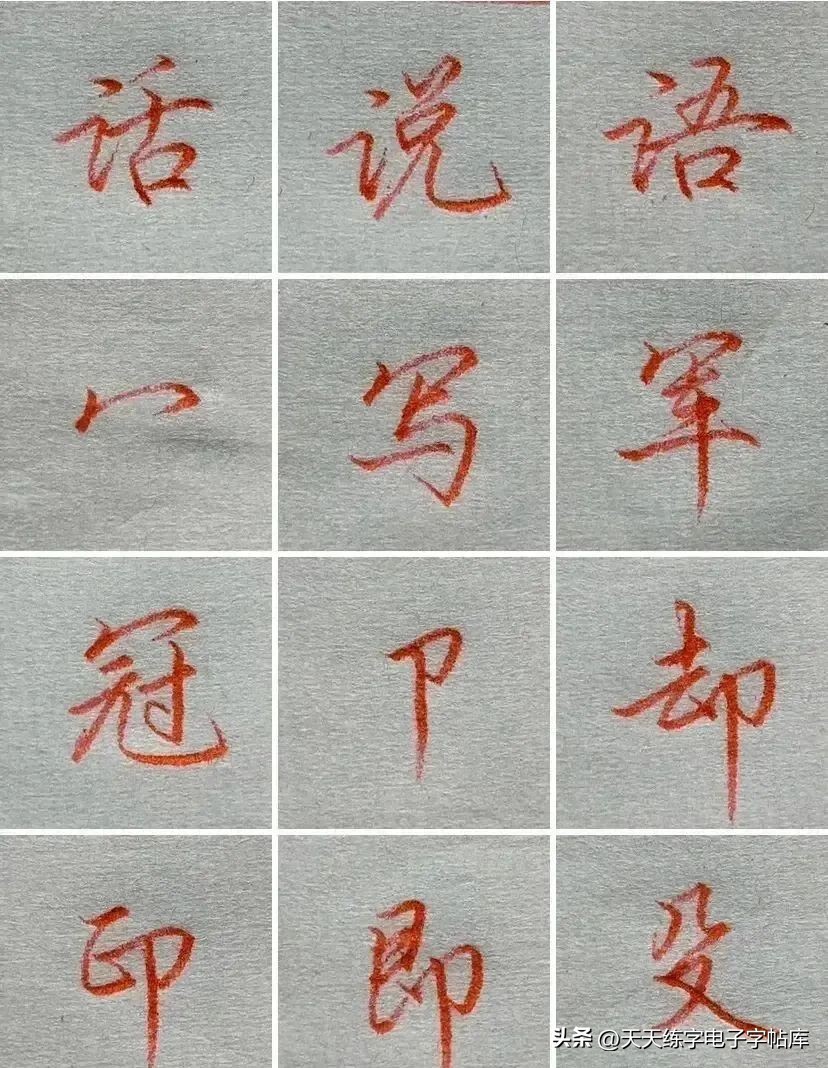 话 说 语
冖 写 军
冠 卩 却
印 即 殳
头条 @天天练字电子字帖库